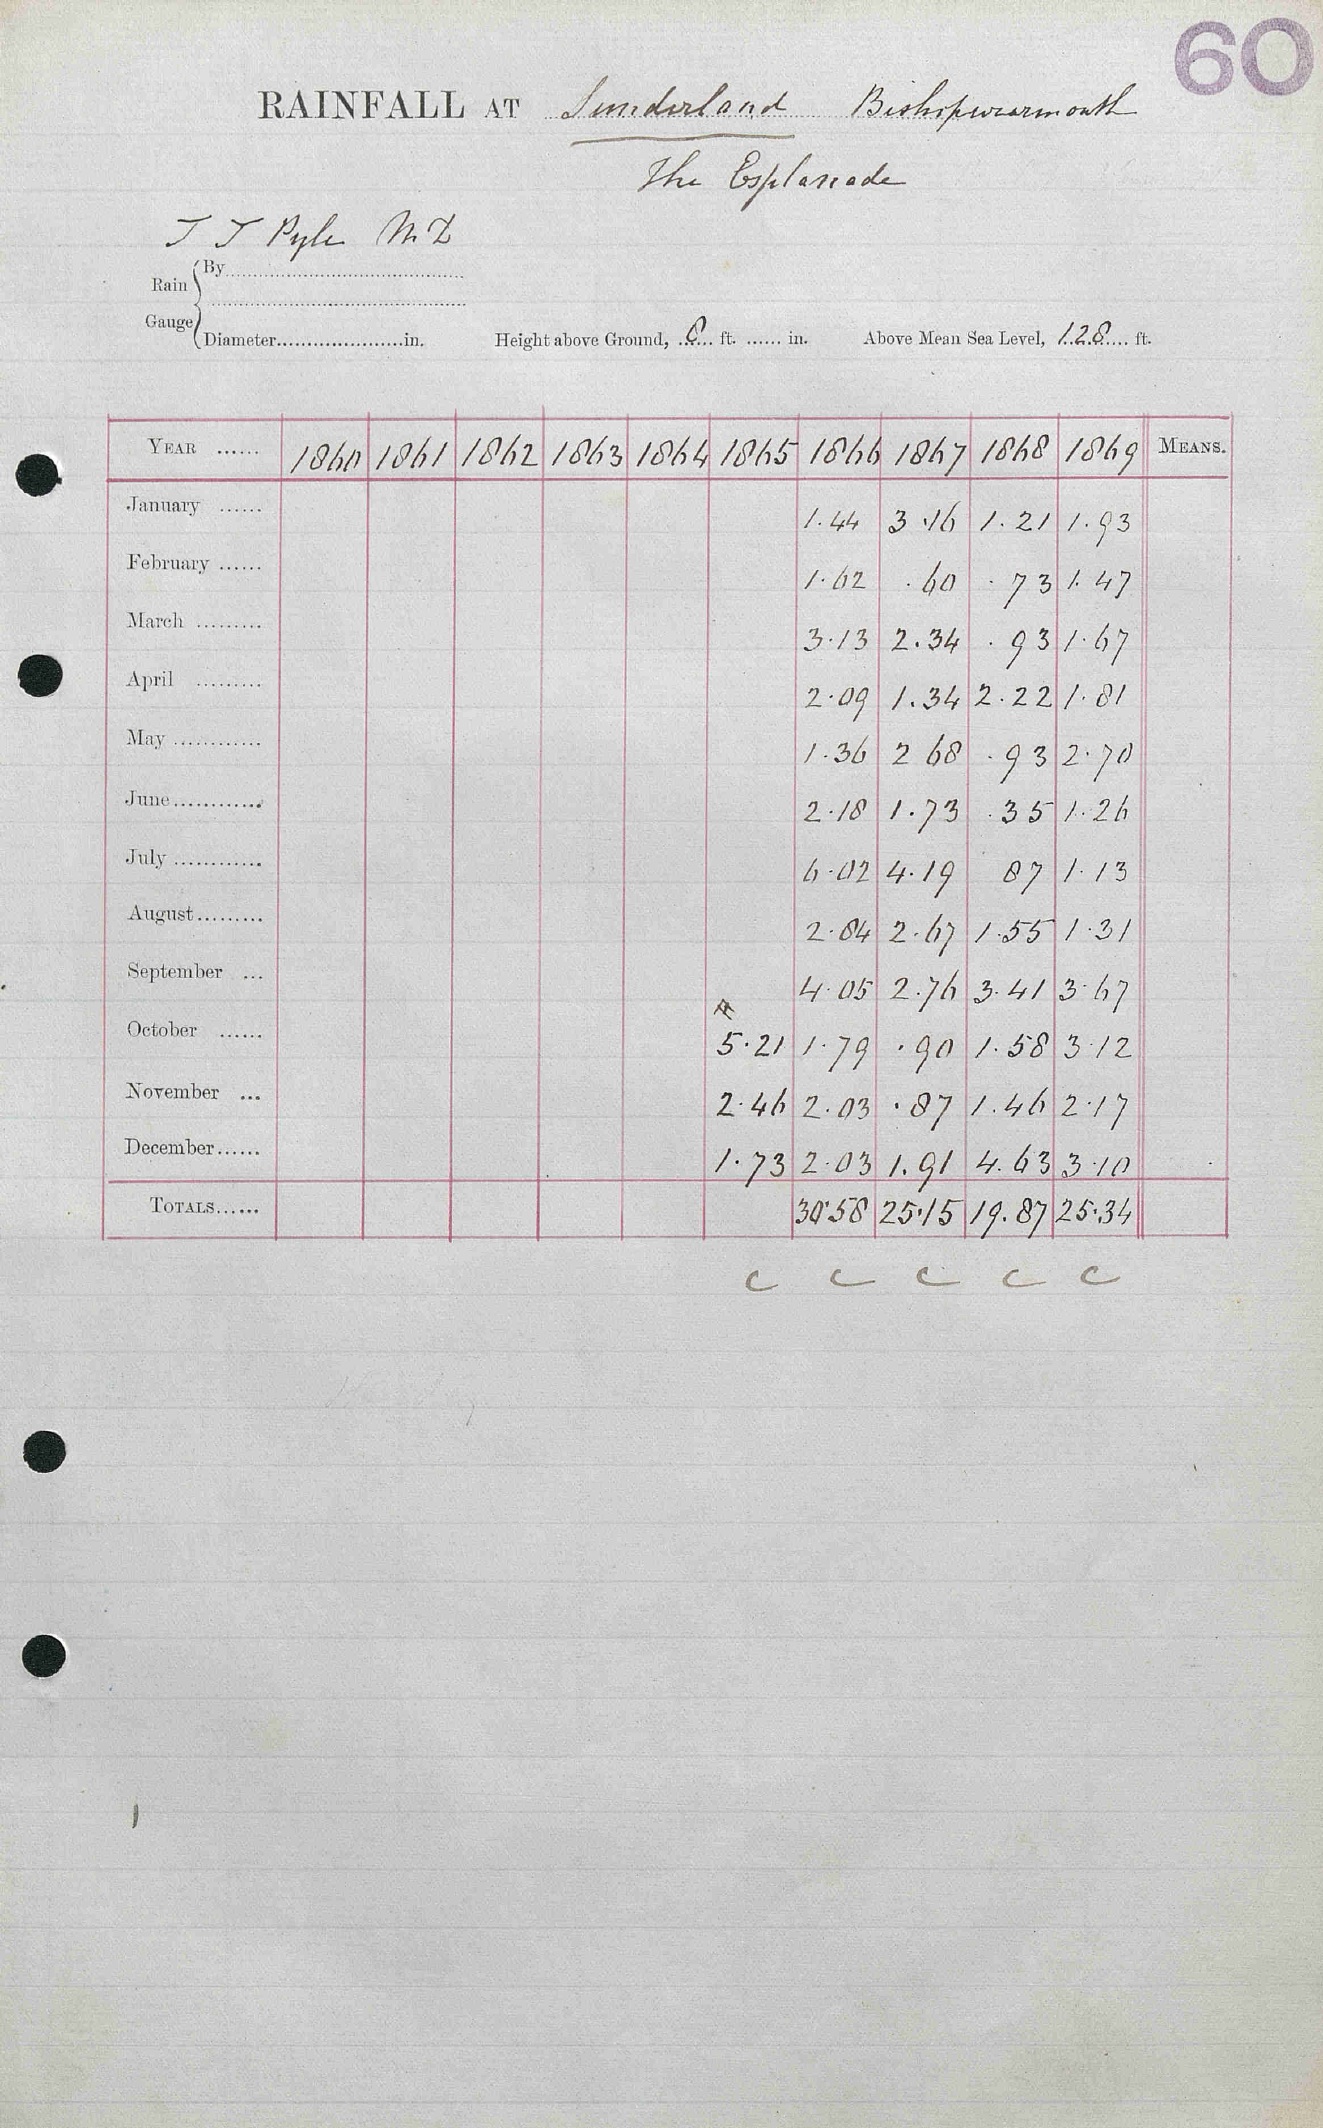 60
RAINFALL AT Sunderland Bishopwearmouth
The Esplanade
T T Pyle M D
Rain Gauge By
Diameter in. Height above Ground, 8 ft. in. Above Mean Sea Level, 128 ft.
YEAR 1860 1861 1862 1863 1864 1865 1866 1867 1868 1869 MEANS.
January 1.44 3.16 1.21 1.93
February 1.62 .60 .73 1.47
March 3.13 2.34 .93 1.67
April 2.09 1.34 2.22 1.81
May 1.36 2 68 .93 2.70
June 2.18 1.73 .35 1.26
July 6.02 4.19 87 1.13
August 2.84 2.67 1.55 1.31
September 4.05 2.76 3.41 3.67
October 5.21 1.79 .90 1.58 3.12
November 2.46 2.03 .87 1.46 2.17
December 1.73 2.03 1.91 4.63 3.10
TOTALS 30.58 25.15 19.87 25.34
C C C C C